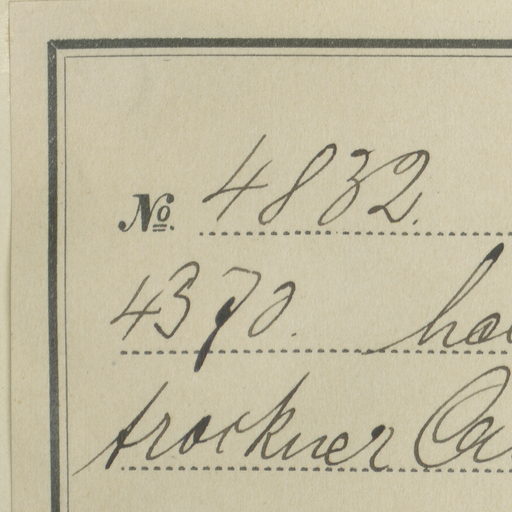 № 4832.
4370.
trockner